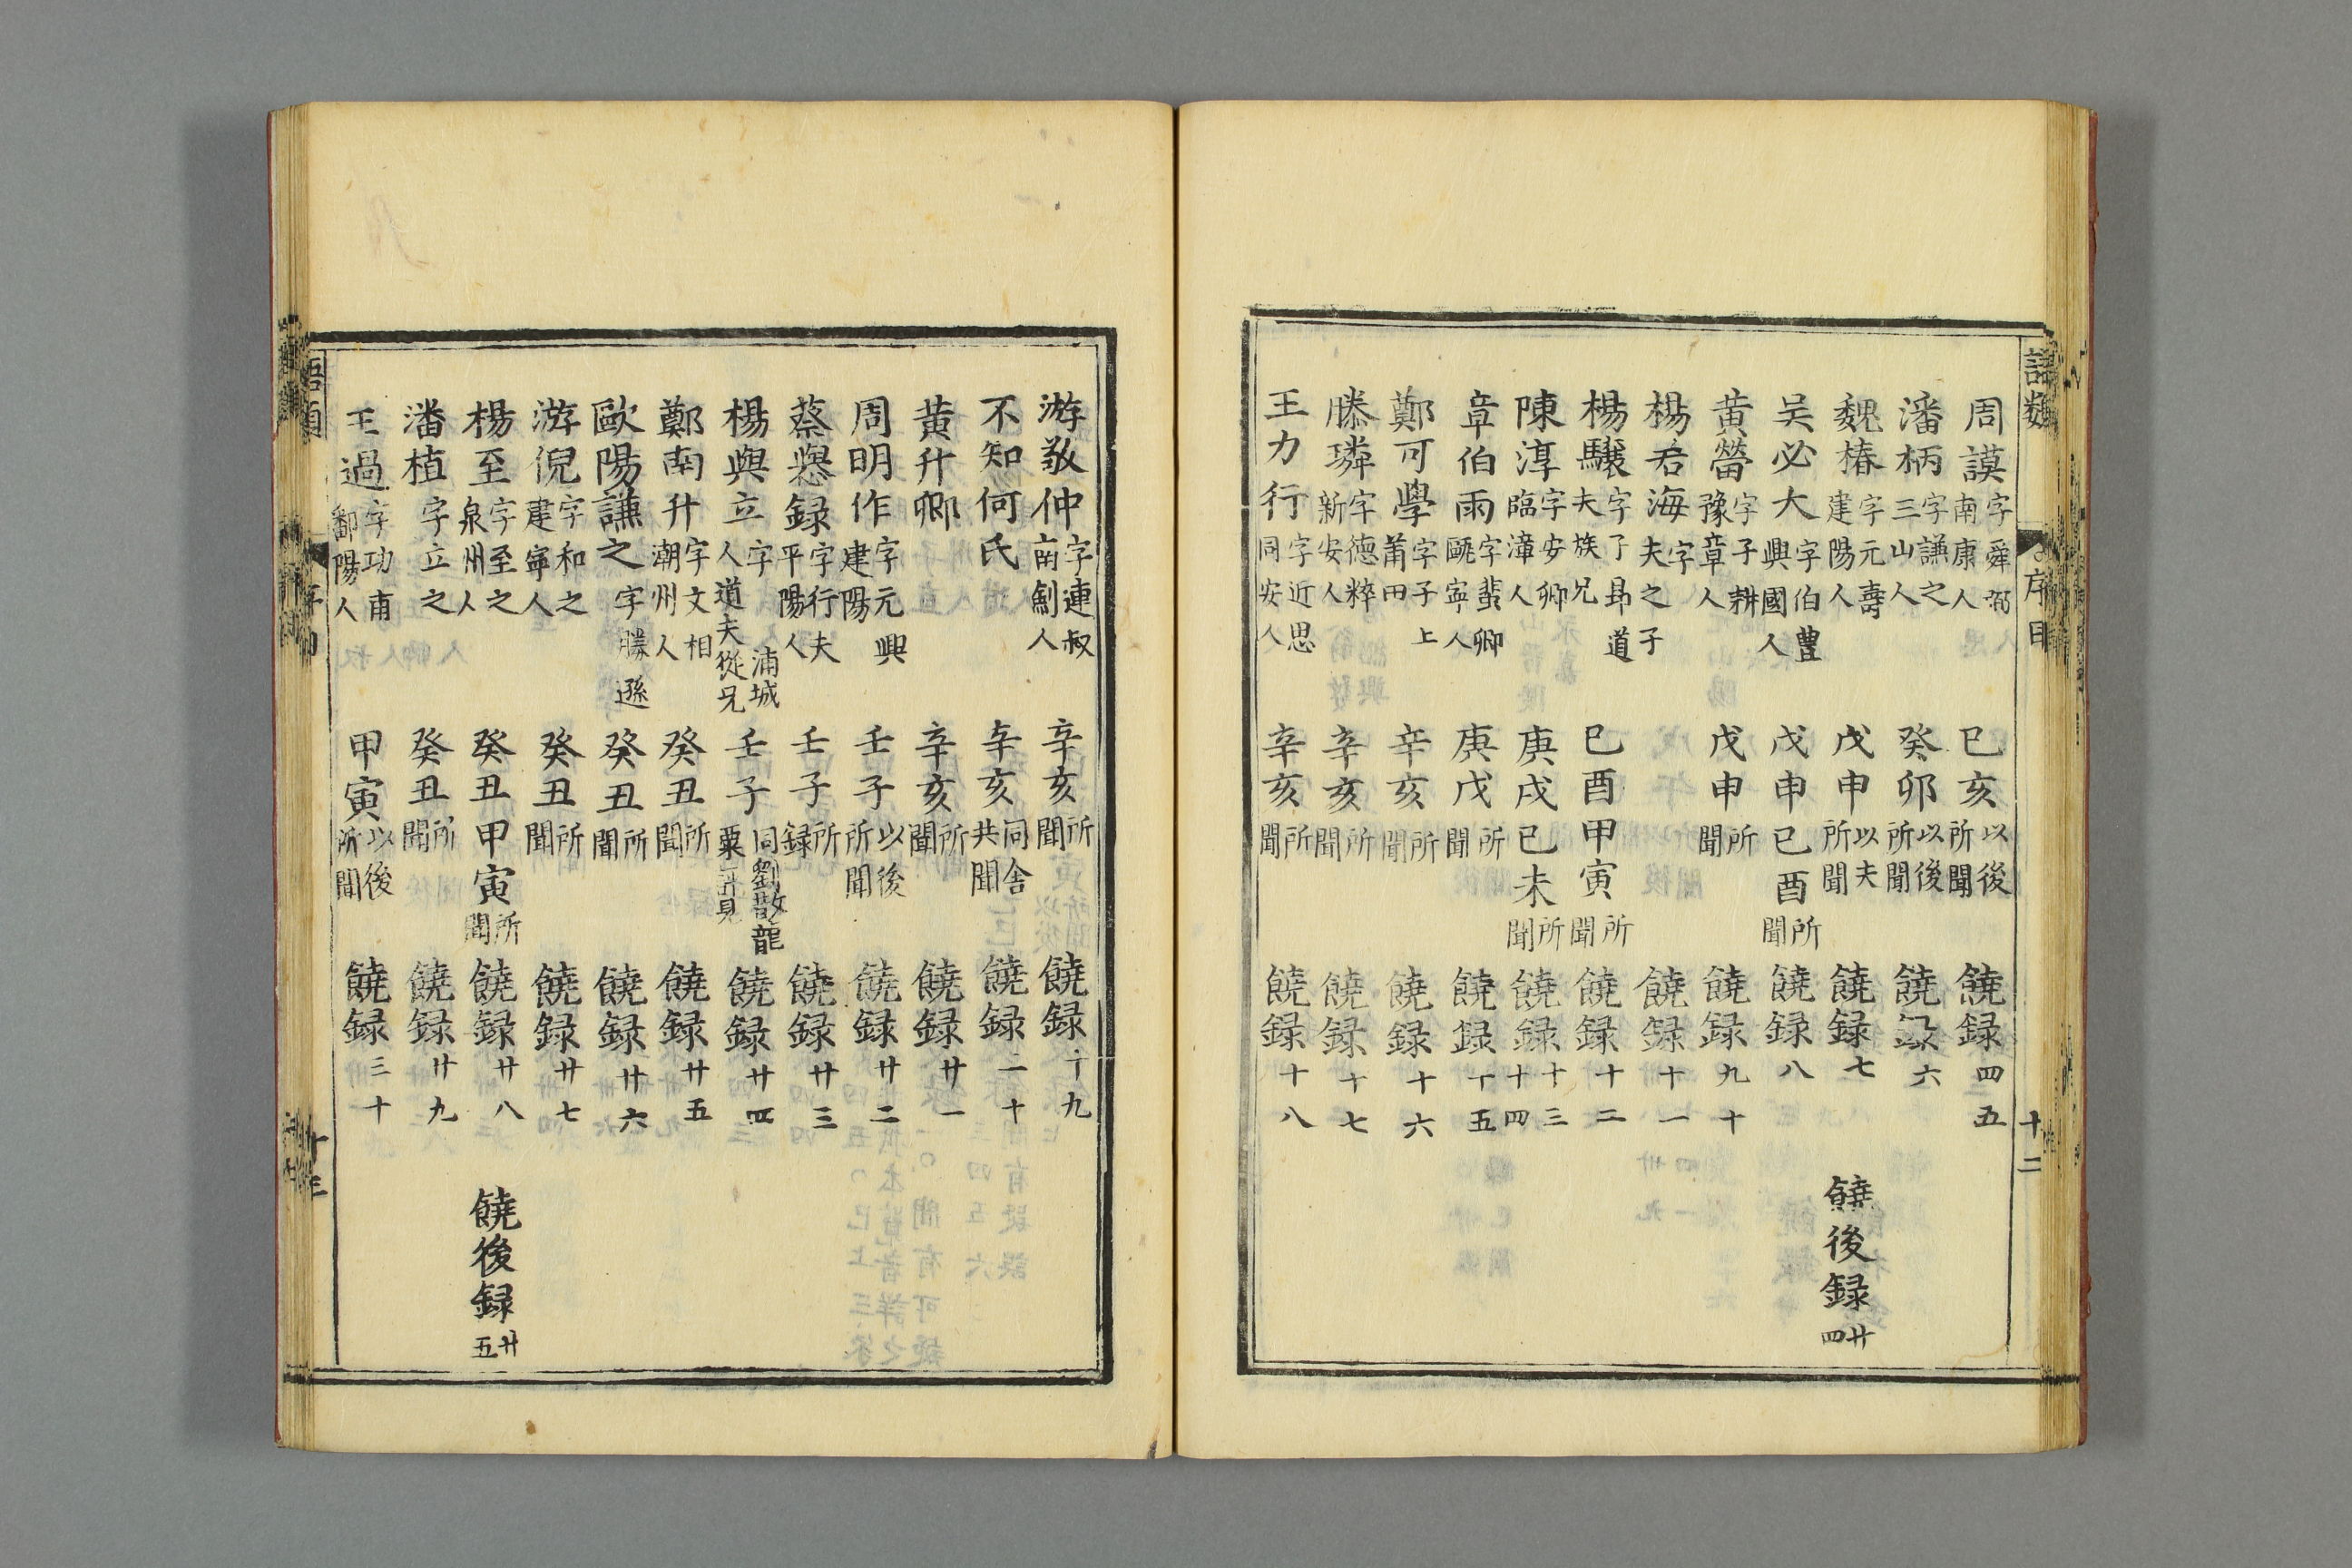 語類
序目
十二
周謨字舜弼南康人 己亥以後所聞 饒録四五
潘柄字謙之三山人 癸卯以後所聞 饒録六
魏椿字元壽建陽人 戊申以夫所聞 饒録七 饒後録廿四
吴必大字伯豐興國人 戊申己酉所聞 饒録八
黄㽦字子耕豫章人 戊申所聞 饒録九十
楊若海字夫之子 饒録十一
楊驤字子昻道夫族兄 己酉甲寅所聞 饒録十二
陳淳字安卿臨漳人 庚戌己未所聞 饒録十三十四
章伯雨字蜚卿甌寧人 庚戌所聞 饒録十五
鄭可學字子上莆田 辛亥所聞 饒録十六
滕璘字德粹新安人 辛亥所聞 饒録十七
王力行字近思同安人 辛亥所聞 饒録十八
游敬仲字連叔南劍人 辛亥所聞 饒録十九
不知何氏 辛亥同舍共聞 饒録二十
黄升卿 辛亥所聞 饒録廿一
周明作字元興建陽 壬子以後所聞 饒録廿二
蔡㦛録字行夫平陽人 壬子所録 饒録廿三
楊與立字 浦城人道夫從兄 壬子同劉黻龍栗 見 饒録廿四
鄭南升字文相潮州人 癸丑所聞 饒録廿五
歐陽謙之字 勝遜 癸丑所聞 饒録廿六
游倪字和之建寧人 癸丑所聞 饒録廿七
楊至字至之泉州人 癸丑甲寅所聞 饒録廿八 饒後録廿五
潘植字立之 癸丑所聞 饒録廿九
王過字功甫鄱陽人 甲寅以後所聞 饒録三十